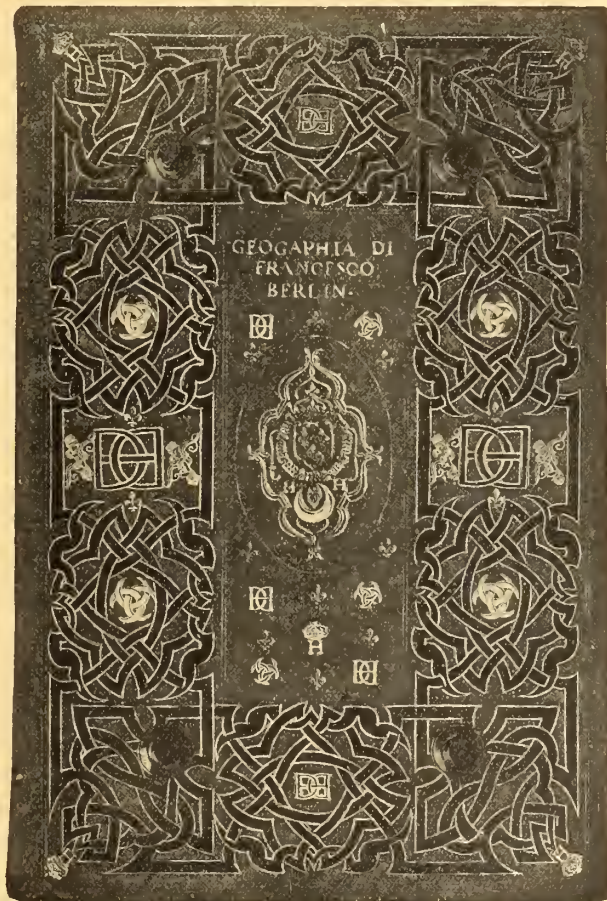 GEOGAPHIA DI
FRANCESCO
BERLIN·
H